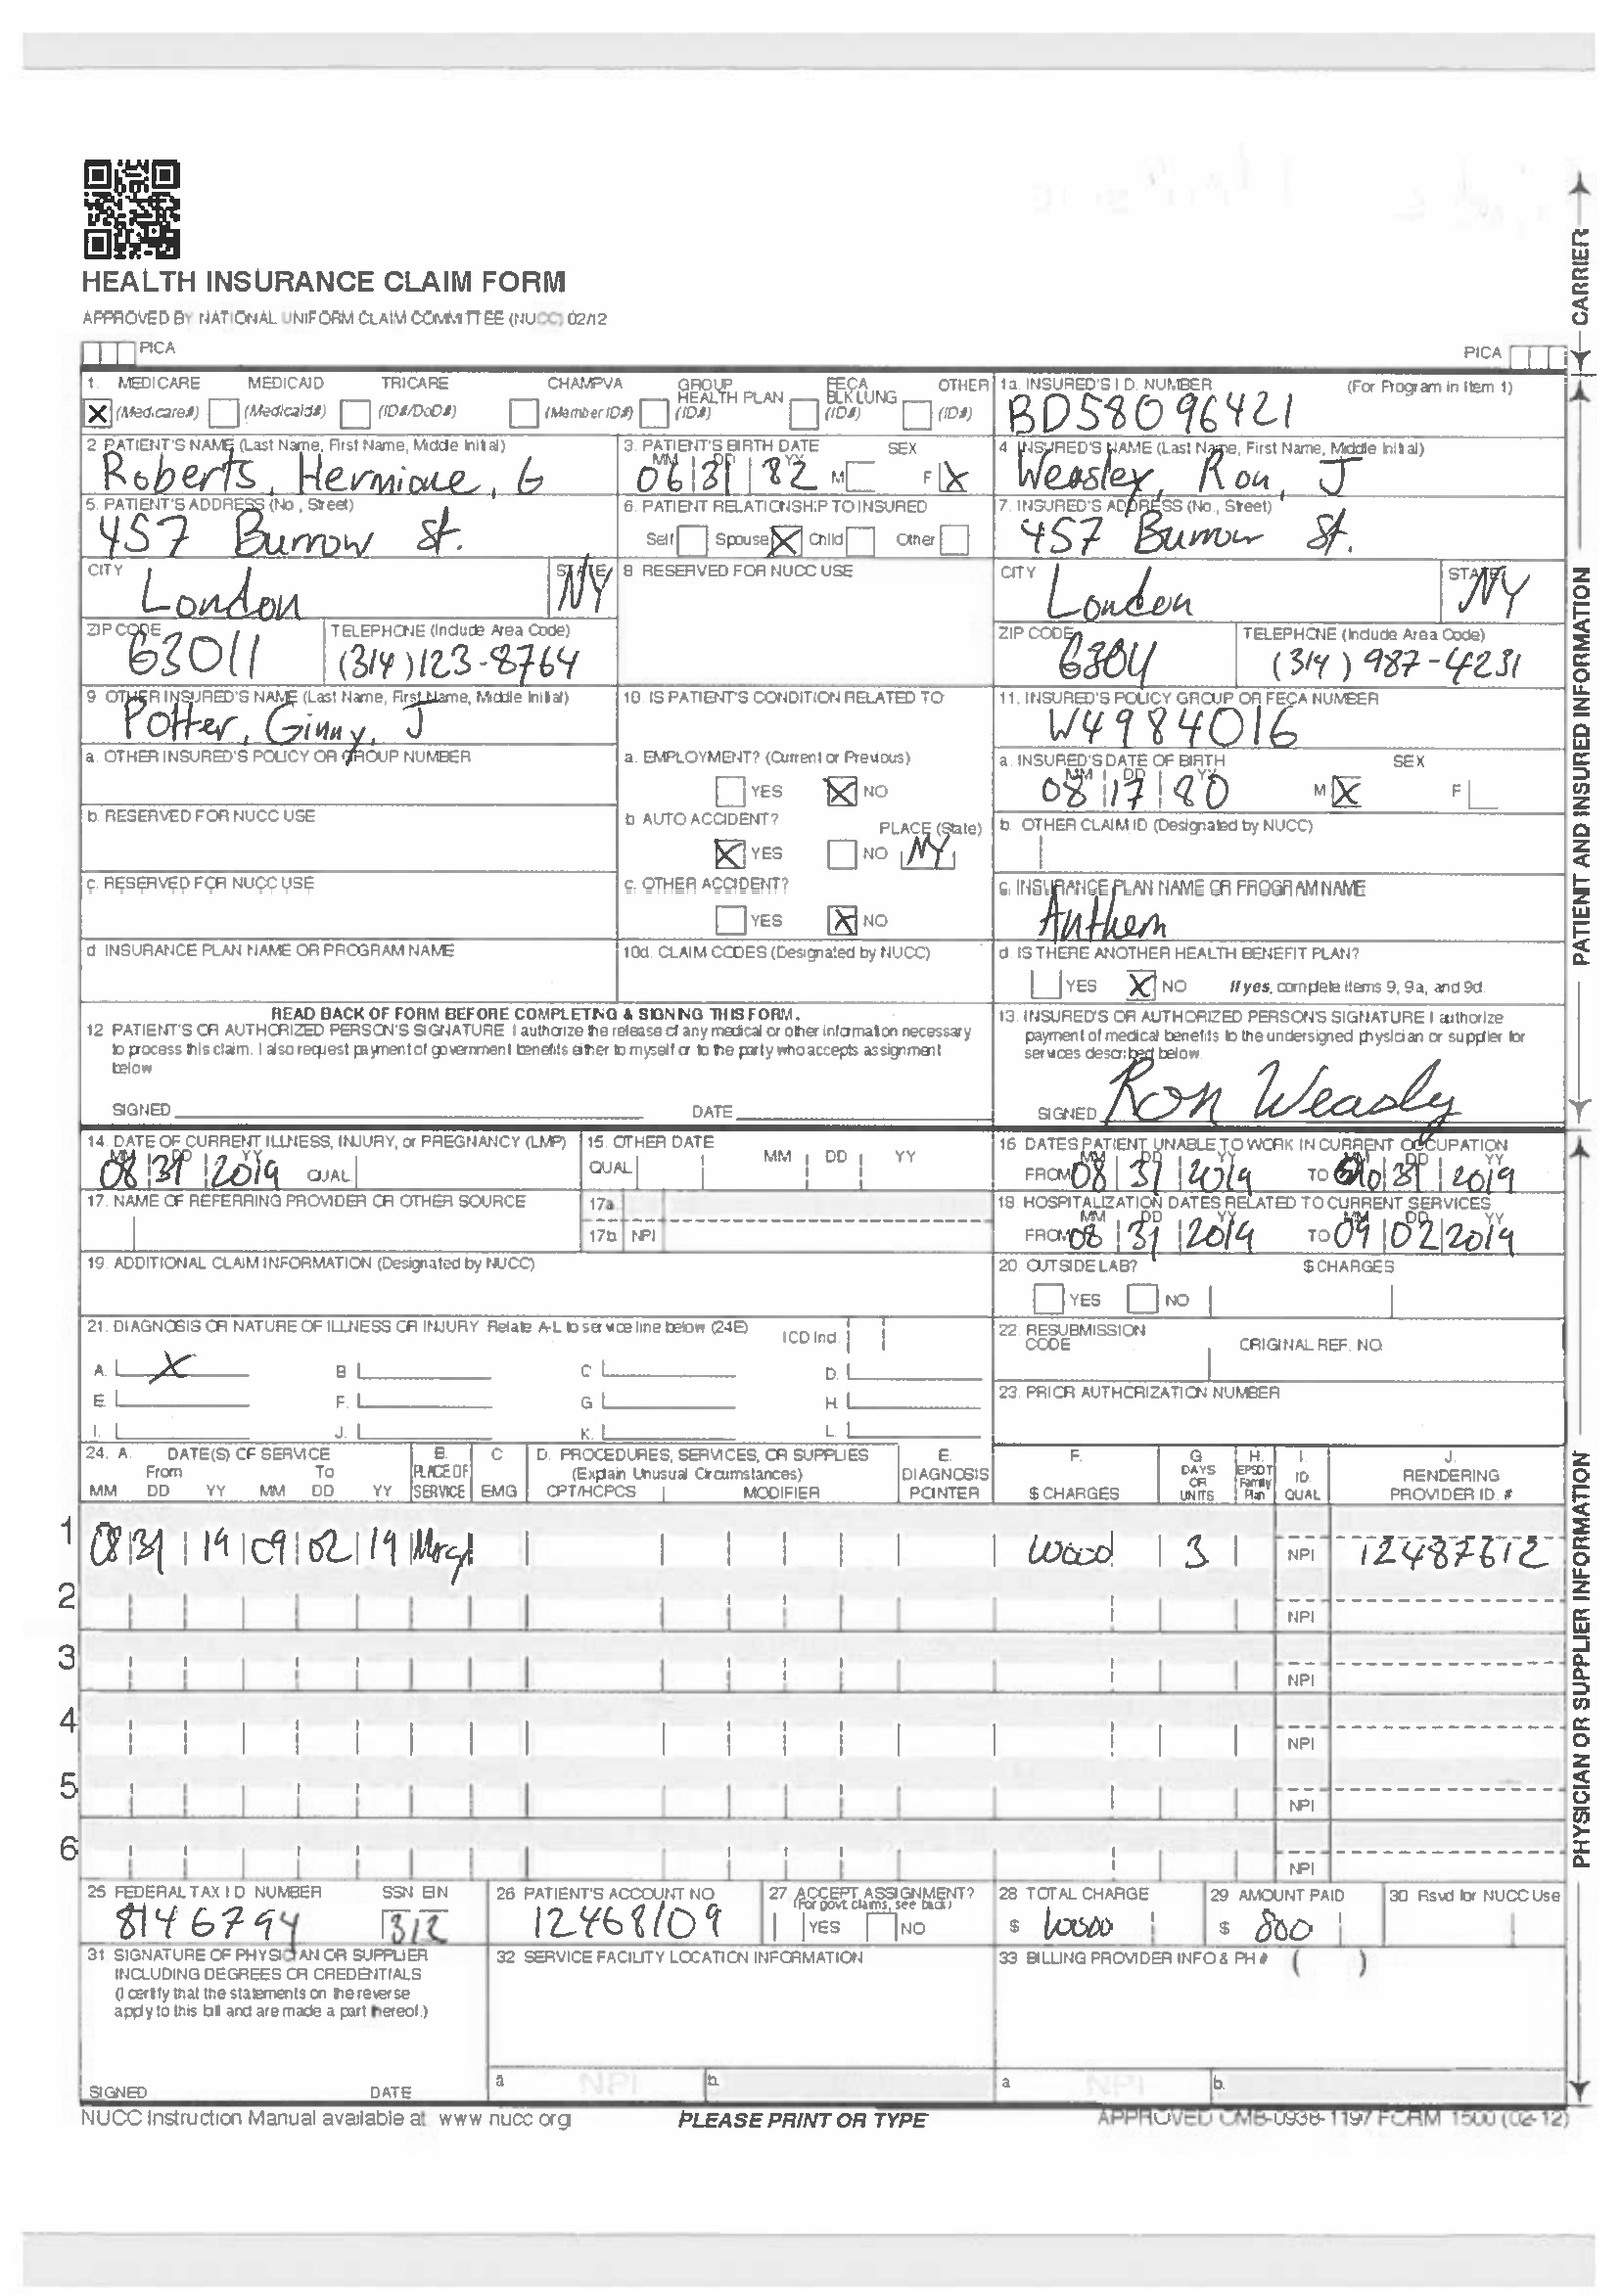 HEALTH INSURANCE CLAIM FORM
APPROVED BY NATIONAL UNIFORM CLAIM COMMITTEE (NUCC) 02/12
PICA
PICA
CARRIER
1. MEDICARE MEDICAID TRICARE CHAMPVA GROUP HEALTH PLAN FECA BLK LUNG OTHER
X (Medicare#) (Medicaid#) (ID#/DoD#) (Member ID#) (ID#) (ID#) (ID#)
1a. INSURED'S I.D. NUMBER (For Program in Item 1)
BD58096421
2 PATIENT'S NAME (Last Name, First Name, Middle Initial)
Roberts, Hermione, G
3. PATIENT'S BIRTH DATE SEX
MM DD YY
06 31 82 M F X
4 INSURED'S NAME (Last Name, First Name, Middle Initial)
Weasley, Ron, J
5. PATIENT'S ADDRESS (No., Street)
457 Burrow St.
6. PATIENT RELATIONSHIP TO INSURED
Self Spouse X Child Other
7. INSURED'S ADDRESS (No., Street)
457 Burrow St.
CITY STATE
London NY
8 RESERVED FOR NUCC USE
CITY STATE
London NY
ZIP CODE TELEPHONE (Include Area Code)
63011 (314) 123-8764
ZIP CODE TELEPHONE (Include Area Code)
(314) 987-4231
9 OTHER INSURED'S NAME (Last Name, First Name, Middle Initial)
Potter, Ginny, J
10 IS PATIENT'S CONDITION RELATED TO
11. INSURED'S POLICY GROUP OR FECA NUMBER
W4984016
a. OTHER INSURED'S POLICY OR GROUP NUMBER
a. EMPLOYMENT? (Current or Previous)
YES X NO
a. INSURED'S DATE OF BIRTH SEX
MM DD YY
08 17 80 M X F
b. RESERVED FOR NUCC USE
b AUTO ACCIDENT? PLACE (State)
X YES NO NY
b. OTHER CLAIM ID (Designated by NUCC)
c. RESERVED FOR NUCC USE
c. OTHER ACCIDENT?
YES X NO
c. INSURANCE PLAN NAME OR PROGRAM NAME
Anthem
d INSURANCE PLAN NAME OR PROGRAM NAME
10d. CLAIM CODES (Designated by NUCC)
d IS THERE ANOTHER HEALTH BENEFIT PLAN?
YES X NO If yes, complete items 9, 9a, and 9d.
READ BACK OF FORM BEFORE COMPLETING & SIGNING THIS FORM.
12 PATIENT'S OR AUTHORIZED PERSON'S SIGNATURE I authorize the release of any medical or other information necessary
to process this claim. I also request payment of government benefits either to myself or to the party who accepts assignment
below
SIGNED DATE
13. INSURED'S OR AUTHORIZED PERSON'S SIGNATURE I authorize
payment of medical benefits to the undersigned physician or supplier for
services described below
SIGNED Ron Weasly
PATIENT AND INSURED INFORMATION
14. DATE OF CURRENT ILLNESS, INJURY, or PREGNANCY (LMP)
MM DD YY
08 31 2019 QUAL
15. OTHER DATE
QUAL MM DD YY
16 DATES PATIENT UNABLE TO WORK IN CURRENT OCCUPATION
MM DD YY MM DD YY
FROM 08 31 2019 TO 10 31 2019
17. NAME OF REFERRING PROVIDER OR OTHER SOURCE
17a
17b NPI
18. HOSPITALIZATION DATES RELATED TO CURRENT SERVICES
MM DD YY MM DD YY
FROM 08 31 2019 TO 09 02 2019
19. ADDITIONAL CLAIM INFORMATION (Designated by NUCC)
20. OUTSIDE LAB? $ CHARGES
YES NO
21. DIAGNOSIS OR NATURE OF ILLNESS OR INJURY Relate A-L to service line below (24E) ICD Ind
A. X B C D.
E F. G H.
I. J. K. L.
22. RESUBMISSION CODE ORIGINAL REF. NO.
23. PRIOR AUTHORIZATION NUMBER
24. A. DATE(S) OF SERVICE B. C D. PROCEDURES, SERVICES, OR SUPPLIES E. F. G H. I. J.
From To PLACE OF (Explain Unusual Circumstances) DIAGNOSIS DAYS OR EPSDT Family ID. RENDERING
MM DD YY MM DD YY SERVICE EMG CPT/HCPCS MODIFIER POINTER $ CHARGES UNITS Plan QUAL PROVIDER ID. #
1 08 31 19 09 02 19 3 NPI 12487612
2 NPI
3 NPI
4 NPI
5 NPI
6 NPI
PHYSICIAN OR SUPPLIER INFORMATION
25 FEDERAL TAX I D NUMBER SSN EIN
8146794 312
26 PATIENT'S ACCOUNT NO
12468109
27 ACCEPT ASSIGNMENT?
(For govt claims, see back)
YES NO
28 TOTAL CHARGE
$
29 AMOUNT PAID
$ 800
30 Rsvd for NUCC Use
31 SIGNATURE OF PHYSICIAN OR SUPPLIER
INCLUDING DEGREES OR CREDENTIALS
(I certify that the statements on the reverse
apply to this bill and are made a part thereof.)
SIGNED DATE
32 SERVICE FACILITY LOCATION INFORMATION
a NPI b.
33 BILLING PROVIDER INFO & PH # ( )
a NPI b.
NUCC Instruction Manual available at www nucc org
PLEASE PRINT OR TYPE
APPROVED OMB-0938-1197 FORM 1500 (02-12)